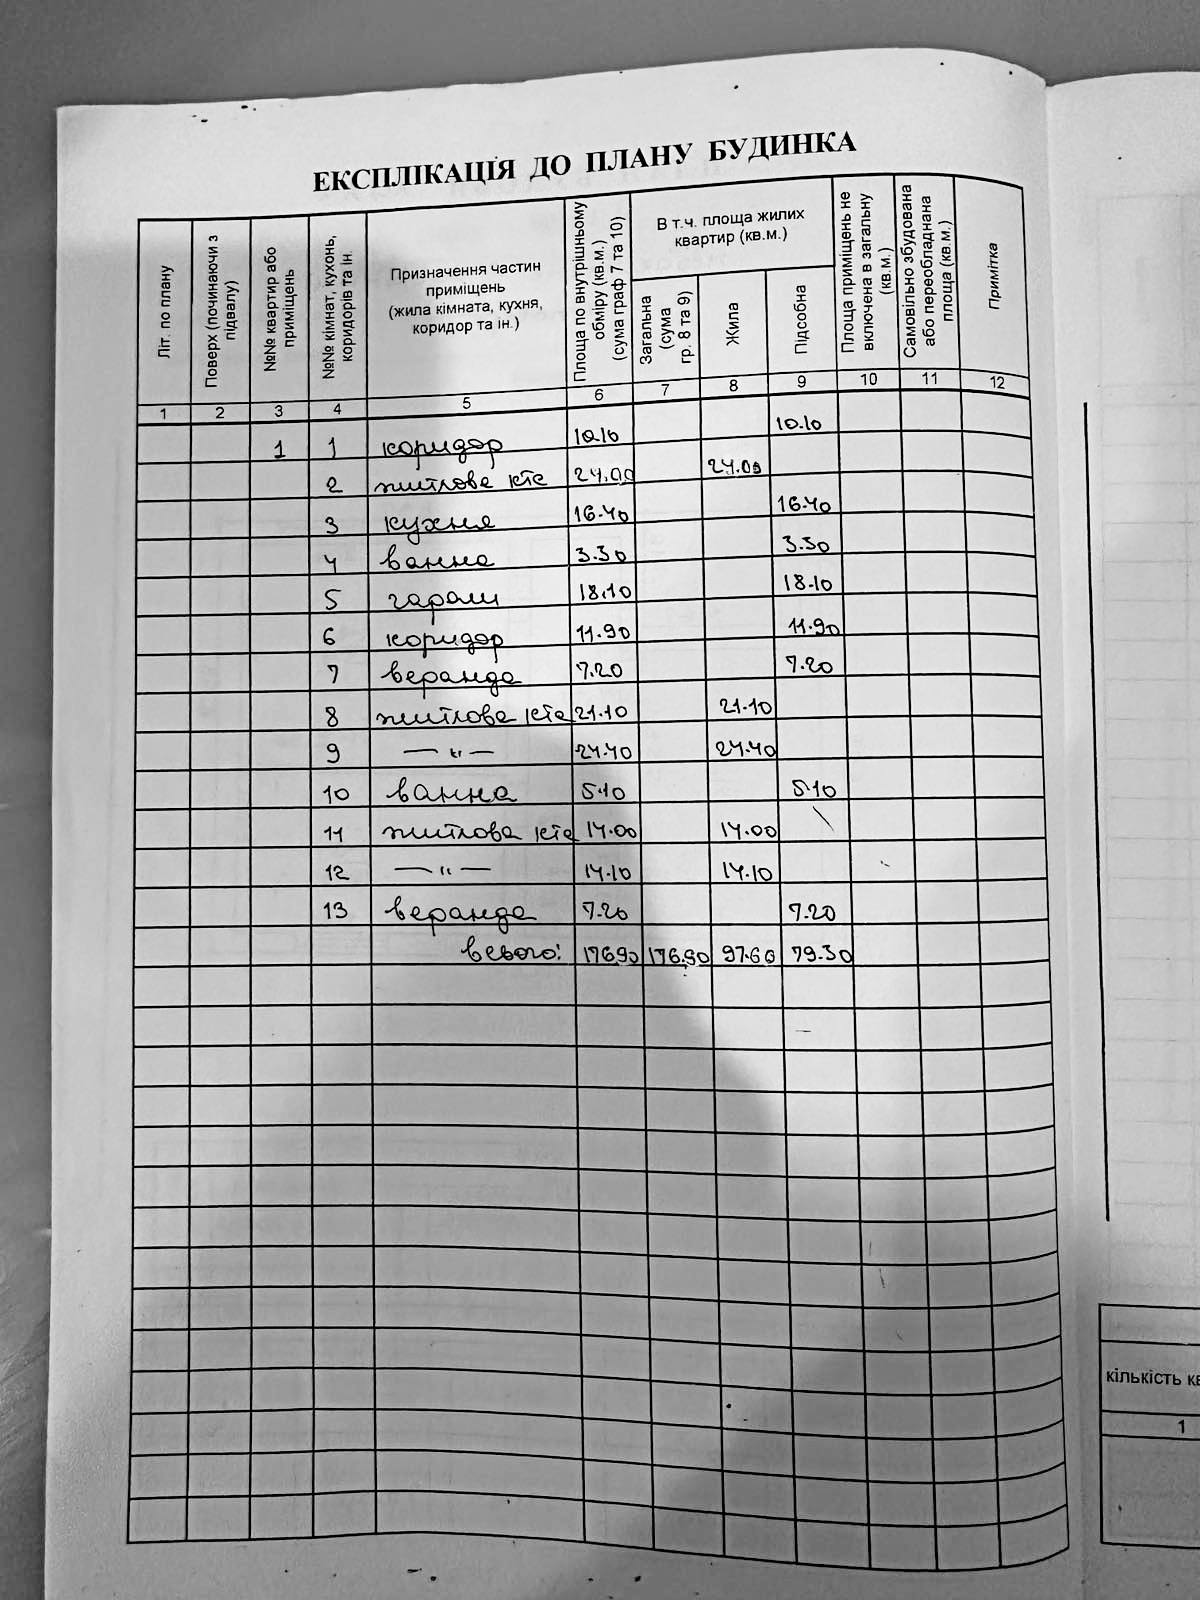 ЕКСПЛІКАЦІЯ ДО ПЛАНУ БУДИНКА
Літ. по плану
Поверх (починаючи з підвалу)
№№ квартир або приміщень
№№ кімнат, кухонь, коридорів та ін.
Призначення частин приміщень (жила кімната, кухня, коридор та ін.)
Площа по внутрішньому обміру (кв.м.) (сума граф 7 та 10)
В т.ч. площа жилих квартир (кв.м.)
Загальна (сума гр. 8 та 9)
Жила
Підсобна
Площа приміщень не включена в загальну (кв.м.)
Самовільно збудована або переобладнана площа (кв.м.)
Примітка
1 2 3 4 5 6 7 8 9 10 11 12
1 1 коридор 10.10 10.10
2 житлова кта 24.00 24.00
3 кухня 16.40 16.40
4 ванна 3.30 3.30
5 гараж 18.10 18.10
6 коридор 11.90 11.90
7 веранда 7.20 7.20
8 житлова кта 21.10 21.10
9 — " — 24.40 24.40
10 ванна 5.10 5.10
11 житлова кта 14.00 14.00
12 — " — 14.10 14.10
13 веранда 7.20 7.20
всього: 176.90 176.90 97.60 79.30
кількість кв
1